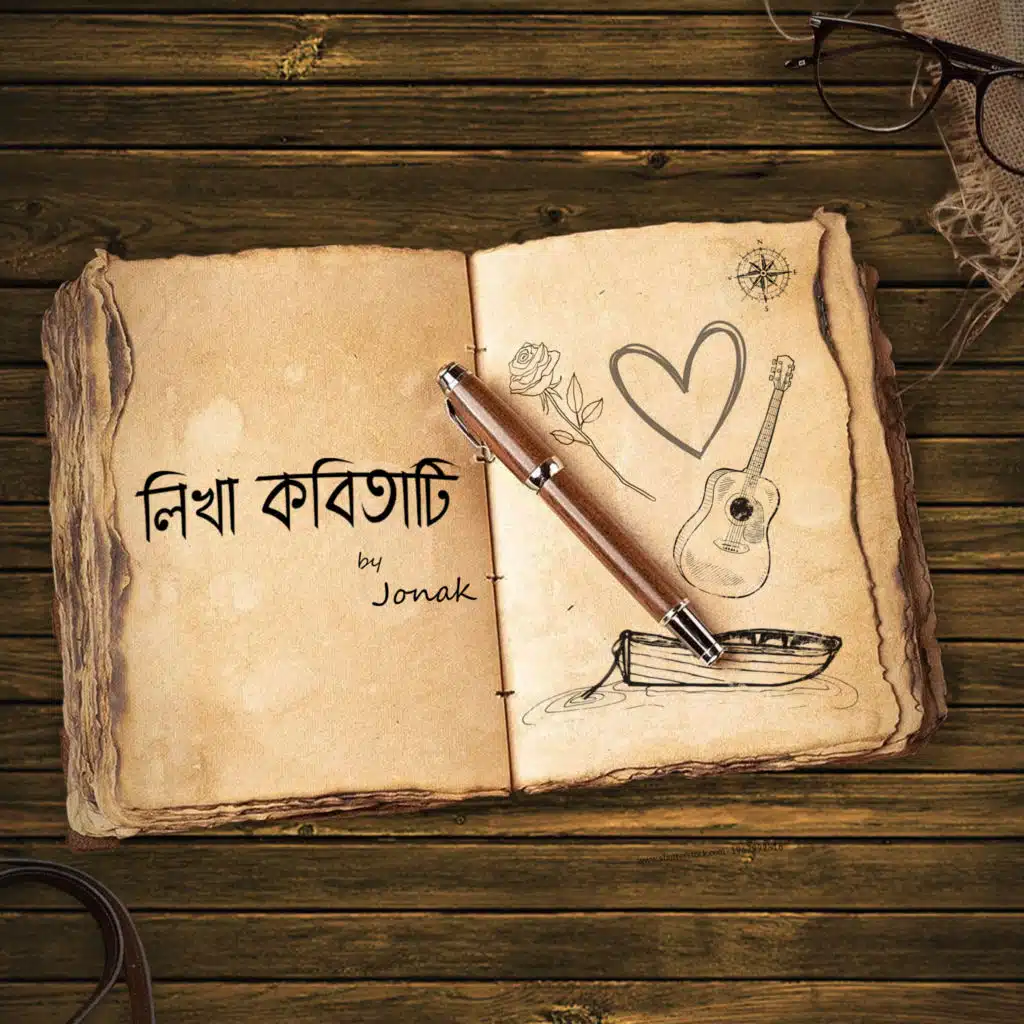 লিখা কবিতাটি
by
Jonak
N
E
S